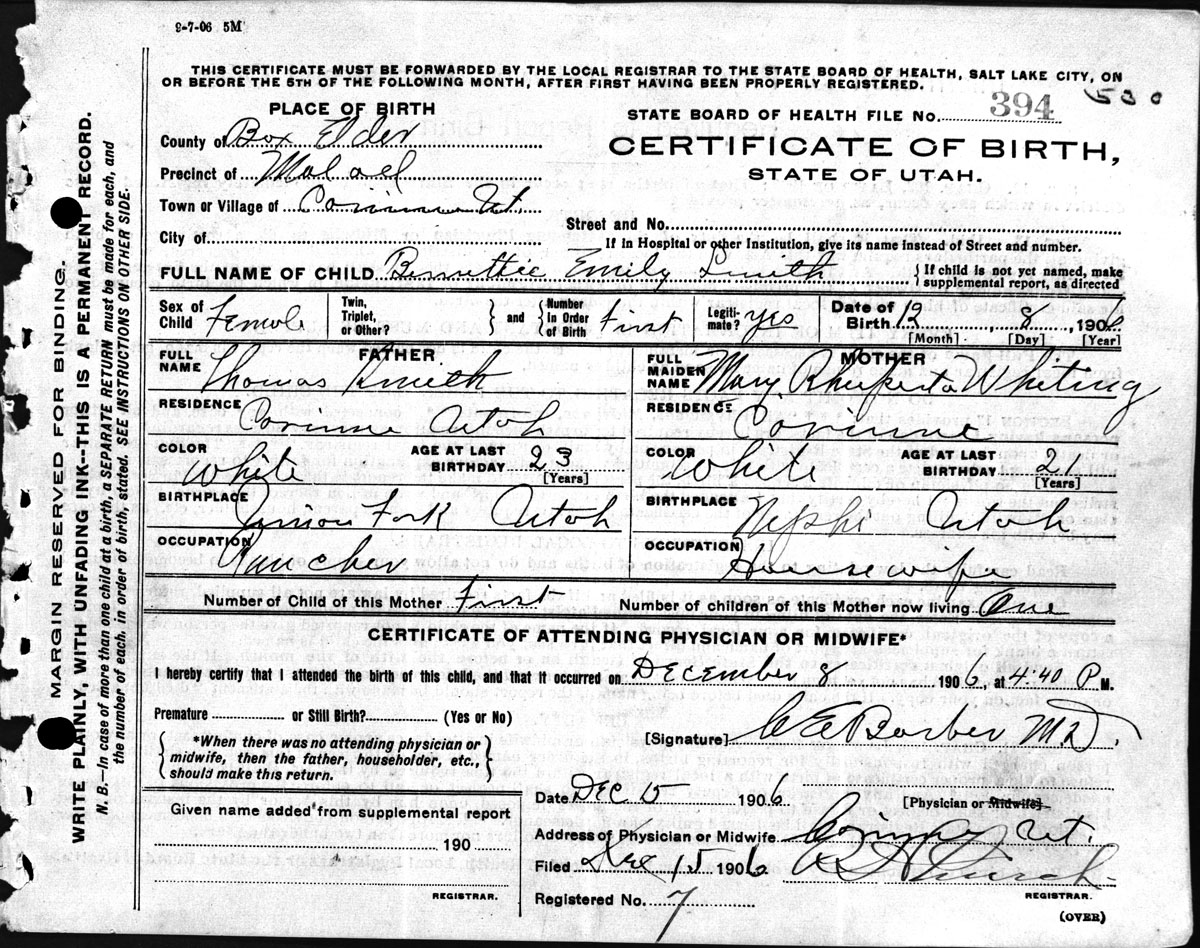 9-7-06 5M
THIS CERTIFICATE MUST BE FORWARDED BY THE LOCAL REGISTRAR TO THE STATE BOARD OF HEALTH, SALT LAKE CITY, ON
OR BEFORE THE 5TH OF THE FOLLOWING MONTH, AFTER FIRST HAVING BEEN PROPERLY REGISTERED.
530
PLACE OF BIRTH
STATE BOARD OF HEALTH FILE No. 394
County of Box Elder
CERTIFICATE OF BIRTH,
Precinct of Malad
STATE OF UTAH.
Town or Village of Corinne Ut
Street and No.
City of
If in Hospital or other Institution, give its name instead of Street and number.
FULL NAME OF CHILD Emily Smith { If child is not yet named, make
supplemental report, as directed
Sex of Child Female
Twin, Triplet, or Other? } and { Number In Order of Birth First
Legitimate? Yes
Date of Birth 12, 8, 1906
[Month] [Day] [Year]
FATHER
FULL NAME Thomas Smith
MOTHER
FULL MAIDEN NAME Mary Whiting
RESIDENCE Corinne Utah
RESIDENCE Corinne
COLOR White AGE AT LAST BIRTHDAY 23 [Years]
COLOR White AGE AT LAST BIRTHDAY 21 [Years]
BIRTHPLACE Fork Utah
BIRTHPLACE Nephi Utah
OCCUPATION Rancher
OCCUPATION Housewife
Number of Child of this Mother First Number of children of this Mother now living One
CERTIFICATE OF ATTENDING PHYSICIAN OR MIDWIFE*
I hereby certify that I attended the birth of this child, and that it occurred on December 8 1906, at 4:40 P M.
Premature or Still Birth? (Yes or No)
{ *When there was no attending physician or
midwife, then the father, householder, etc.,
should make this return. }
[Signature] C E Barber M.D.
Date Dec 15 1906 [Physician or Midwife]
Given name added from supplemental report
190
Address of Physician or Midwife Corinne, Ut.
Filed Dec 15 1906 Church
REGISTRAR.
REGISTRAR.
Registered No. 7
(OVER)
MARGIN RESERVED FOR BINDING.
WRITE PLAINLY, WITH UNFADING INK--THIS IS A PERMANENT RECORD.
N. B.—In case of more than one child at a birth, a SEPARATE RETURN must be made for each, and
the number of each, in order of birth, stated. SEE INSTRUCTIONS ON OTHER SIDE.